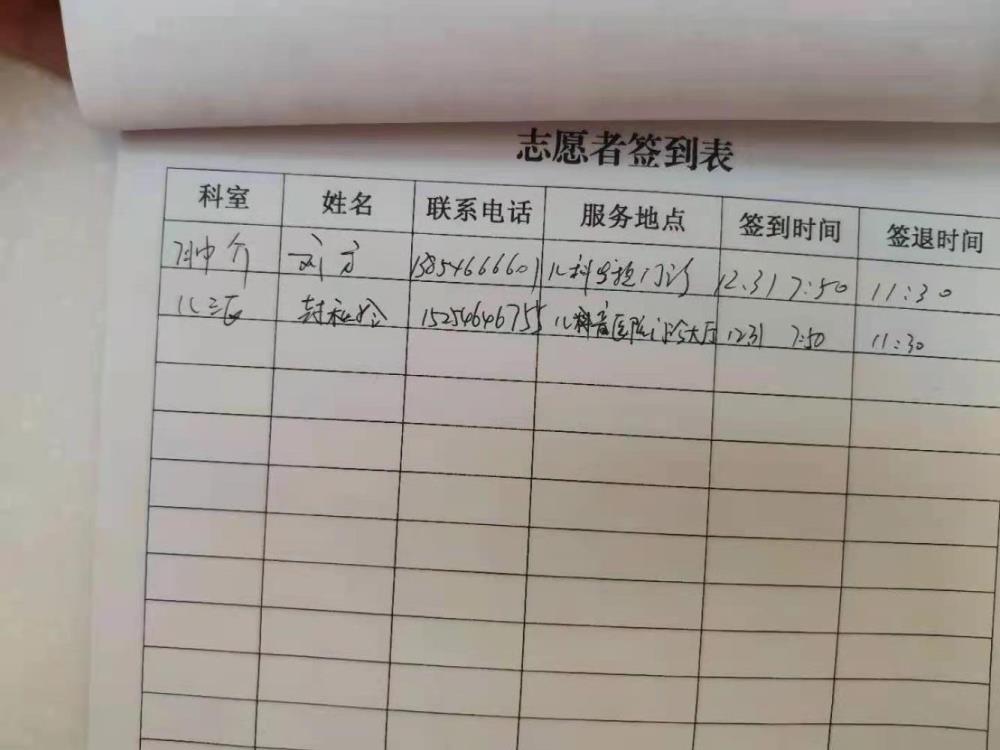 志愿者签到表
科室 姓名 联系电话 服务地点 签到时间 签退时间
肿介 刘方 13854666601 儿科 门诊 12.31 7:50 11:30
儿三 封 15254646755 儿科 医院门诊大厅 1231 7:50 11:30